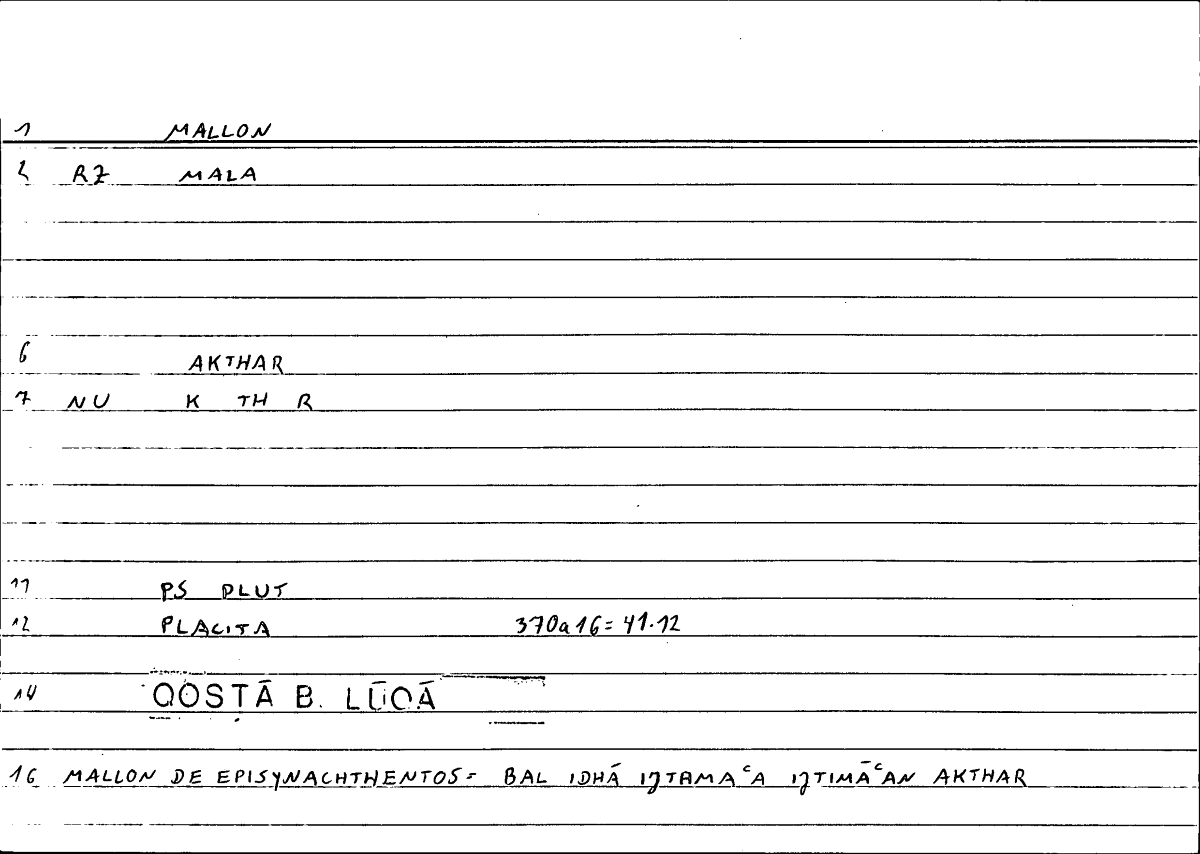 1 MALLON
2 RZ MALA
6 AKTHAR
7 NU K TH R
11 PS PLUT
12 PLACITA 370a16=41.12
14 QOSṬĀ B. LŪQĀ
16 MALLON DE EPISYNACHTHENTOS= BAL IDHÁ IJTAMAᶜA IJTIMĀᶜAN AKTHAR